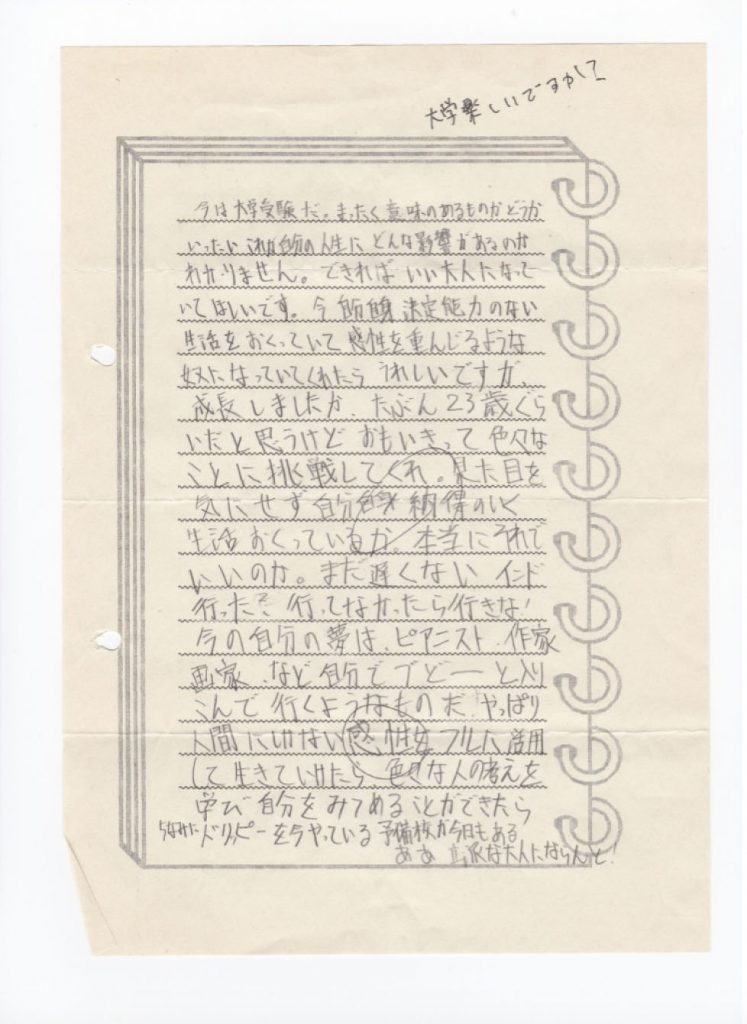 大学楽しいですかして
今は大学受験だ。まったく意味のあるものかどうか
いったいこれが自分の人生にどんな影響があるのか
わかりません。できればいい大人になって
いてほしいです。今自分自身決定能力のない
生活をおくっていて感性を重んじるような
奴になっていてくれたらうれしいですが、
成長しましたか、たぶん23歳ぐら
いだと思うけどおもいきって色々な
ことに挑戦してくれ。見た目を
気にせず自分自身納得のいく
生活おくっているか。本当にそれで
いいのか。まだ遅くないインド
行った?行ってなかったら行きな!
今の自分の夢は、ピアニスト、作家
画家、など自分でブどーーと入り
こんで行くようなものだ。やっぱり
人間にしかない感性をフルに活用
して生きていけたら色々な人の考えを
学び自分をみつめることができたら
ちなみにドリッピーを今やっている予備校が今日もある
ああ立派な大人にならんと!